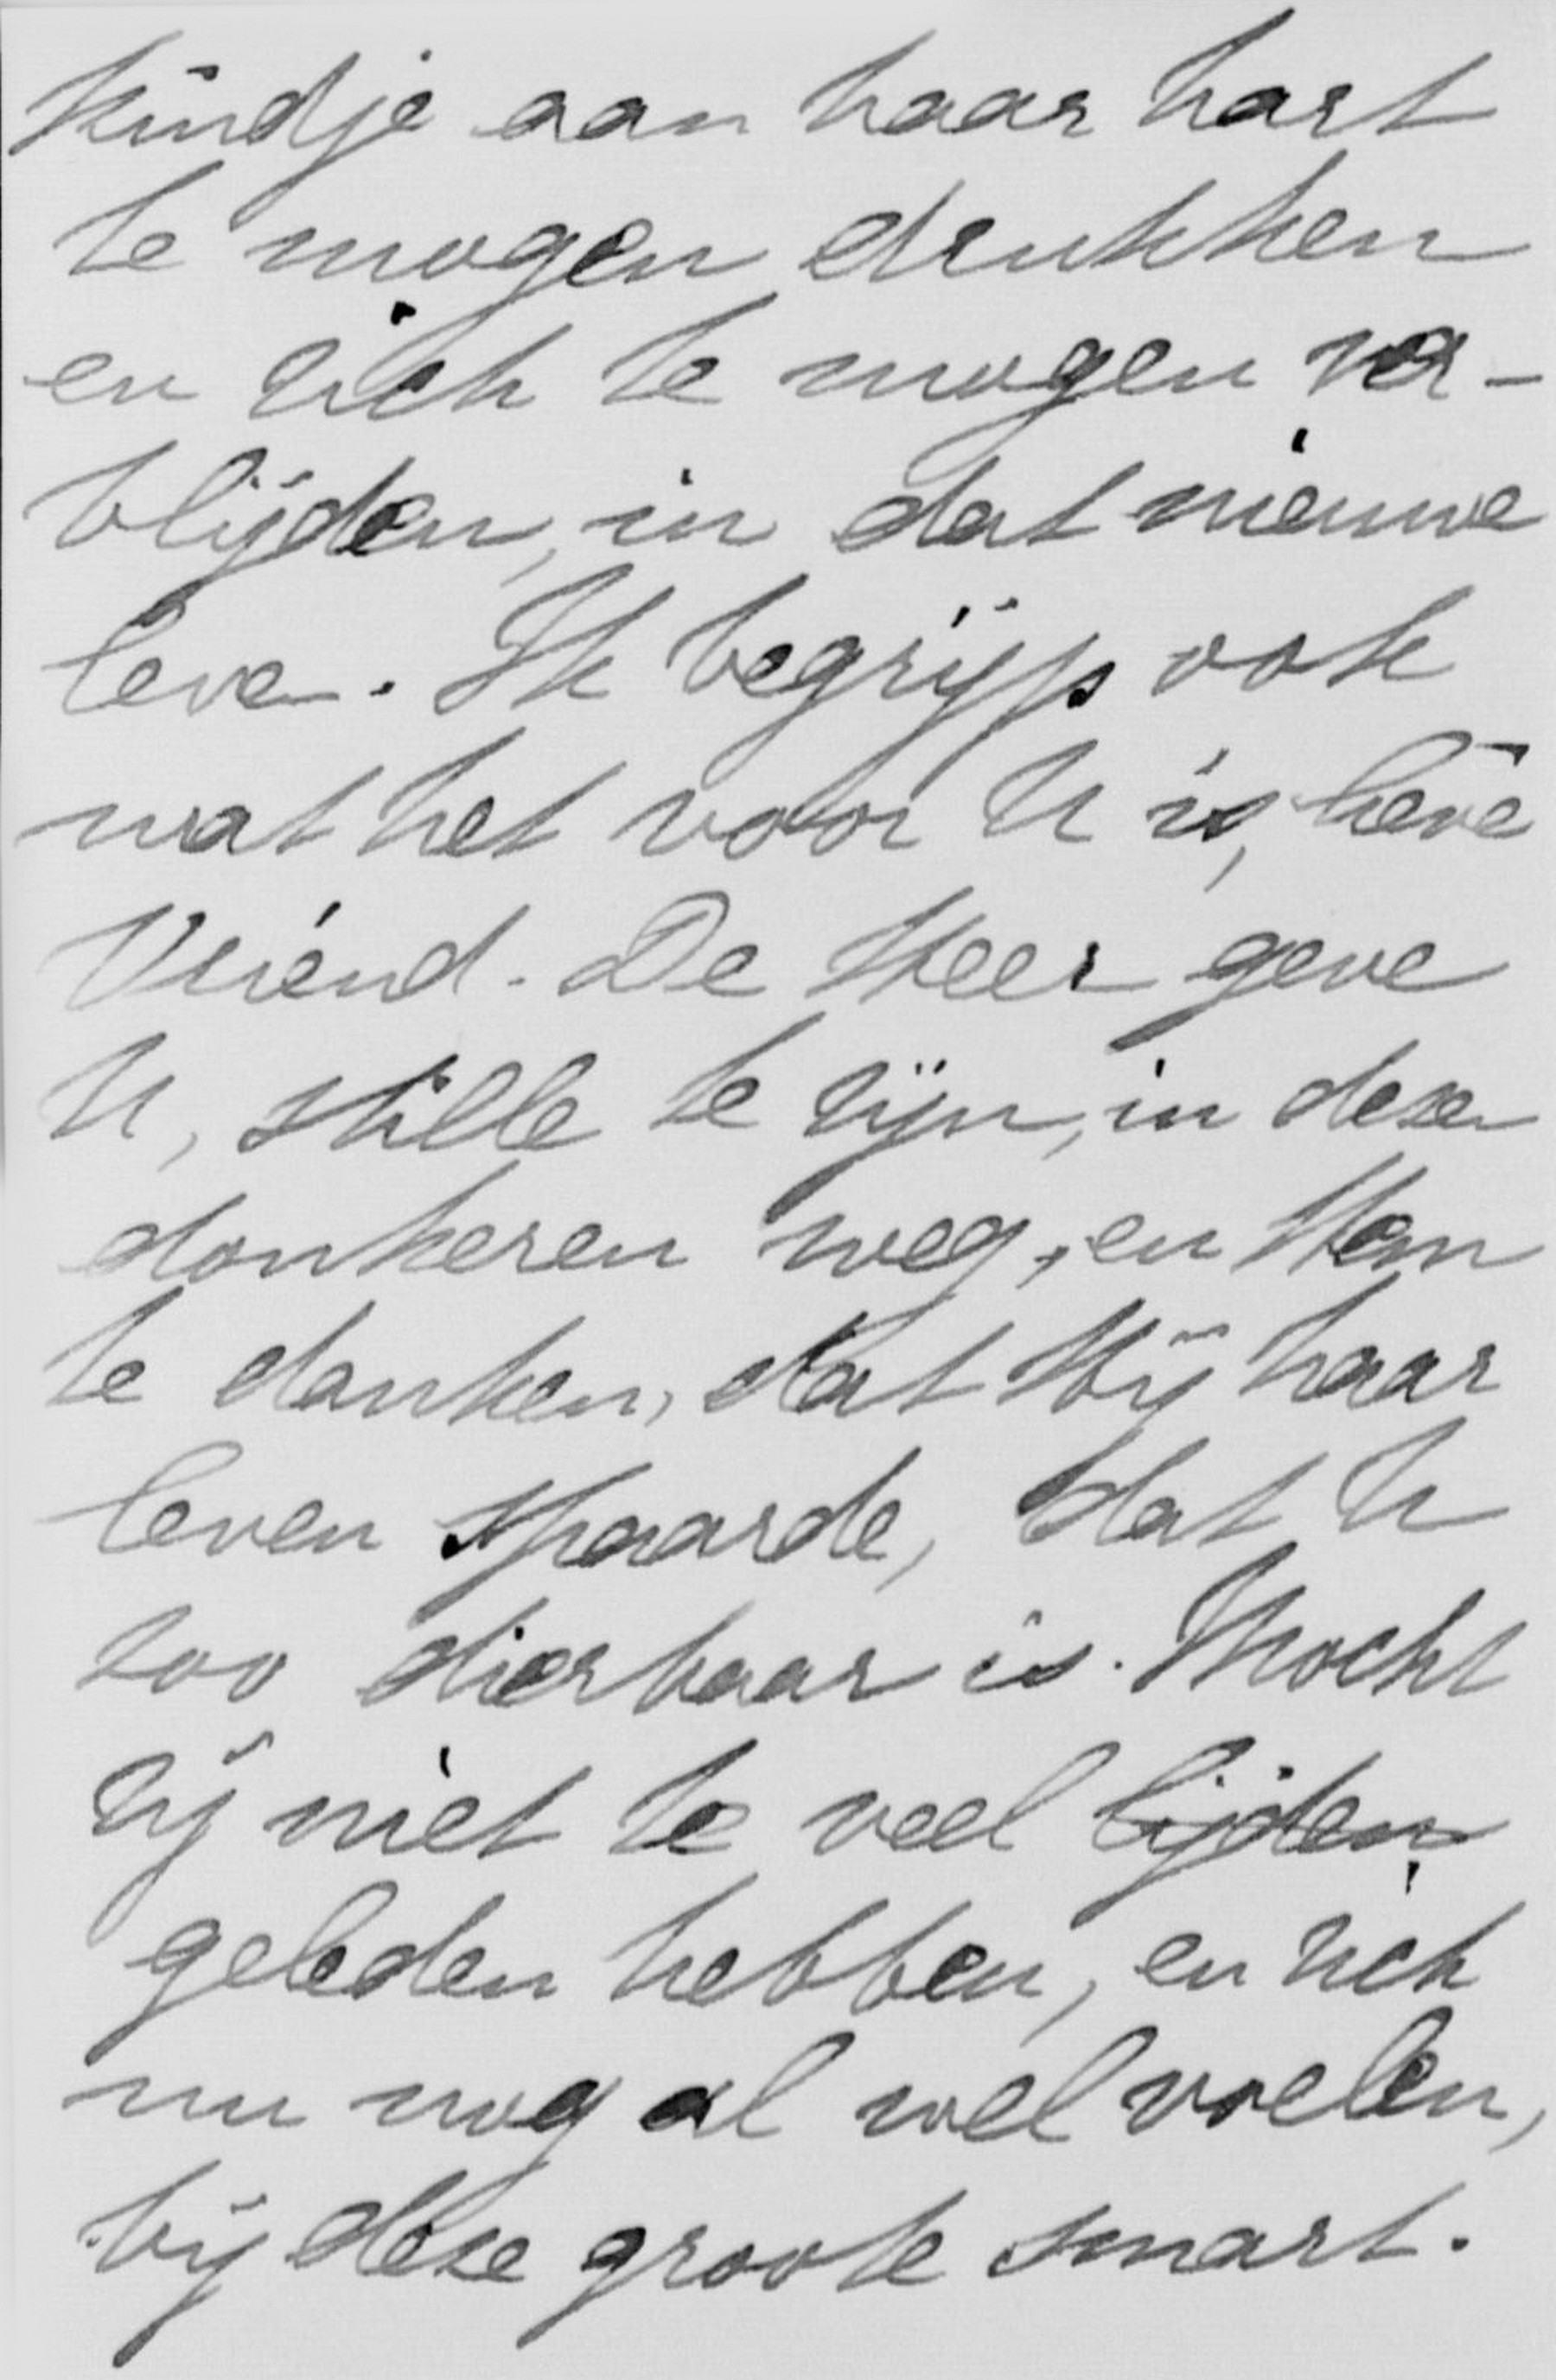 kindje aan haar hart
te mogen drukken
en zich te mogen ver-
blijden, in dat nieuwe
leven. Ik begrijp ook
wat het voor U is, lieve
Vriend. De Heer geve
U, stille te zijn, in dezen
donkeren weg, en Hem
te danken, dat Hij haar
leven spaarde, dat U
zoo dierbaar is. Mocht
zij niet te veel lijden
geleden hebben, en zich
nu nog al wel voelen,
bij deze groote smart.